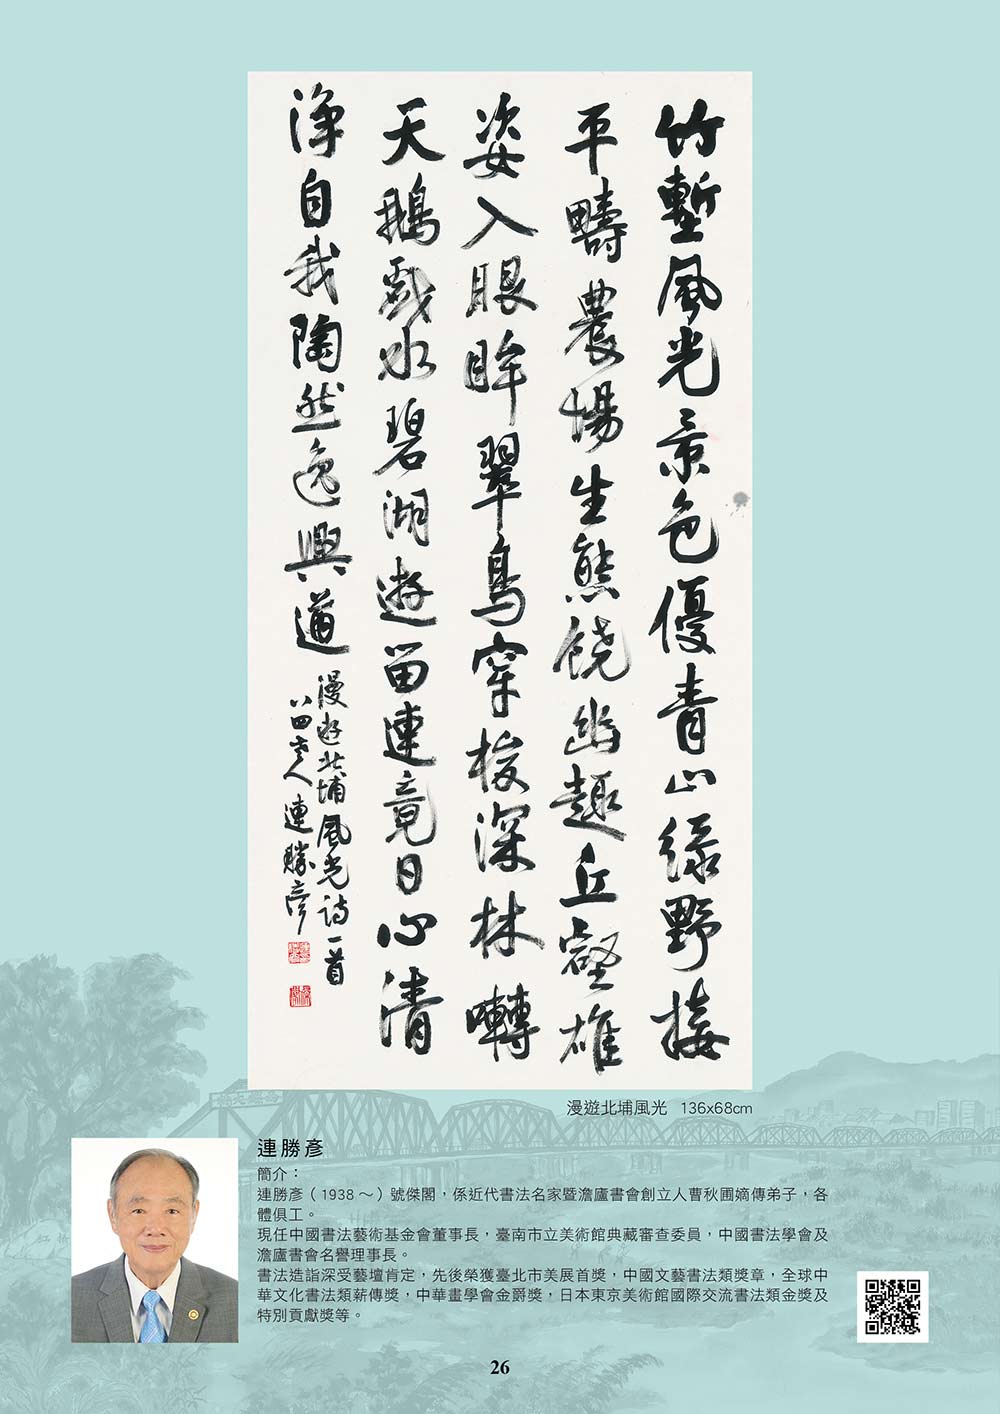 竹塹風光景色優青山綠野接
平疇農場生態饒幽趣丘壑雄
姿入眼眸翠鳥穿梭深林囀
天鵝戲水碧湖遊留連竟日心清
淨自我陶然逸興遒
漫遊北埔風光詩一首
八四老人連勝彥
漫遊北埔風光 136x68cm
連勝彥
簡介：
連勝彥（1938～）號傑閣，係近代書法名家暨澹廬書會創立人曹秋圃嫡傳弟子，各
體俱工。
現任中國書法藝術基金會董事長，臺南市立美術館典藏審查委員，中國書法學會及
澹廬書會名譽理事長。
書法造詣深受藝壇肯定，先後榮獲臺北市美展首獎，中國文藝書法類獎章，全球中
華文化書法類薪傳獎，中華畫學會金爵獎，日本東京美術館國際交流書法類金獎及
特別貢獻獎等。
26